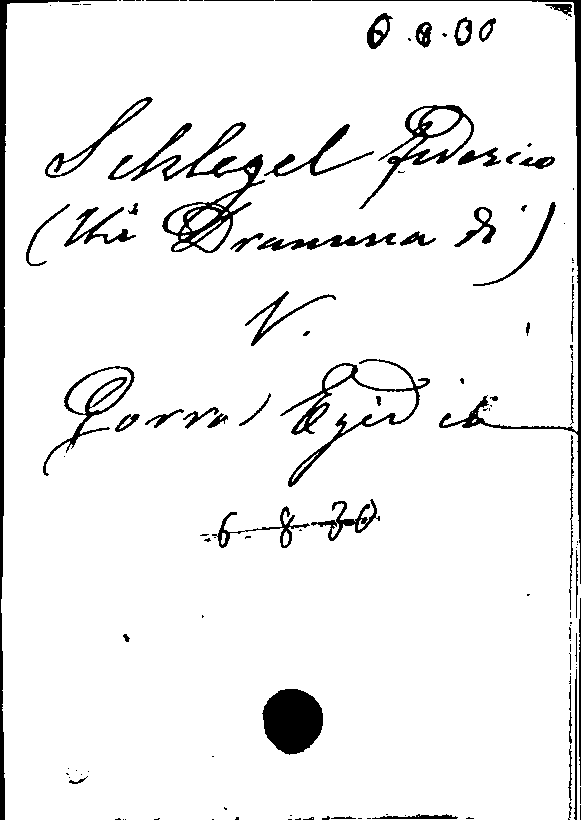 6.8.30
Schlegel Federico
(Un Dramma di)
V.
Gorra Egidio
6 8 30